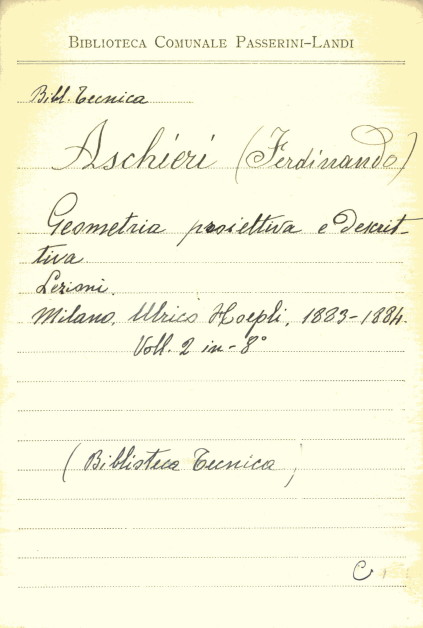 BIBLIOTECA COMUNALE PASSERINI-LANDI
Bibl. Tecnica
Aschieri (Ferdinando)
Geometria proiettiva e descrit-
tiva.
Lezioni.
Milano, Ulrico Hoepli, 1883-1884.
Voll. 2 in-8°
(Biblioteca Tecnica)
C